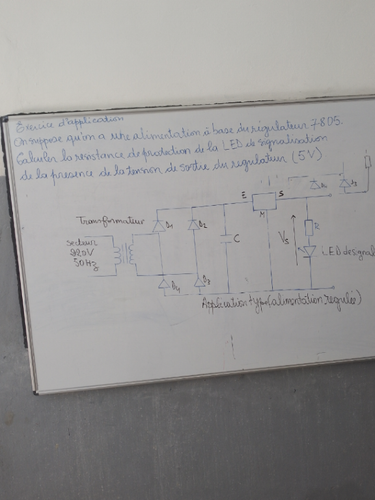 Exercice d'application
On suppose qu'on a une alimentation à base du régulateur 7805.
Calculer la resistance de protection de la LED de signalisation
de la presence de la tension de sortie du regulateur (5V)
Transformateur
D1
D2
E
S
M
secteur
220V
50Hz
C
Vs
R
LED de signal
D4
D3
Application type (alimentation regulée)